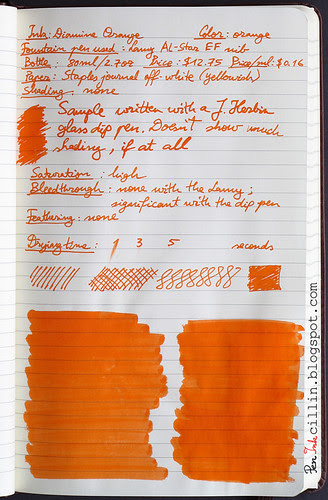 Ink: Diamine Orange Color: orange
Fountain pen used: Lamy AL-Star EF nib
Bottle: 80ml/2.7oz Price: $12.75 Price/ml: $0.16
Paper: Staples journal off-white (yellowish)
Shading: none
Sample written with a J. Herbin
glass dip pen. Doesn't show much
shading, if at all
Saturation: high
Bleedthrough: none with the Lamy;
significant with the dip pen
Feathering: none
Drying time: 1 3 5 seconds
Pen Ink cillin.blogspot.com